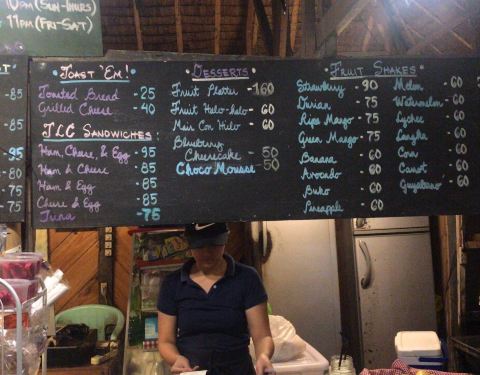 10PM (SUN-THURS)
11PM (FRI-SAT)
-85
-85
-95
-80
-75
"TOAST 'EM!"
Toasted Bread -25
Grilled Cheese -40
TLC SANDWICHES
Ham, Cheese, & Egg -95
Ham & Cheese -85
Ham & Egg -85
Cheese & Egg -85
Tuna -75
DESSERTS
Fruit Platter -160
Fruit Halo-halo - 60
Mais Con Hielo - 60
Blueberry
Cheesecake - 50
Choco Mousse - 50
FRUIT SHAKES
Strawberry - 90
Durian - 75
Ripe Mango - 75
Green Mango - 75
Banana - 60
Avocado - 60
Buko - 60
Pineapple - 60
Melon - 60
Watermelon - 60
Lychee - 60
Langka - 60
Corn - 60
Carrot - 60
Guyabano - 60